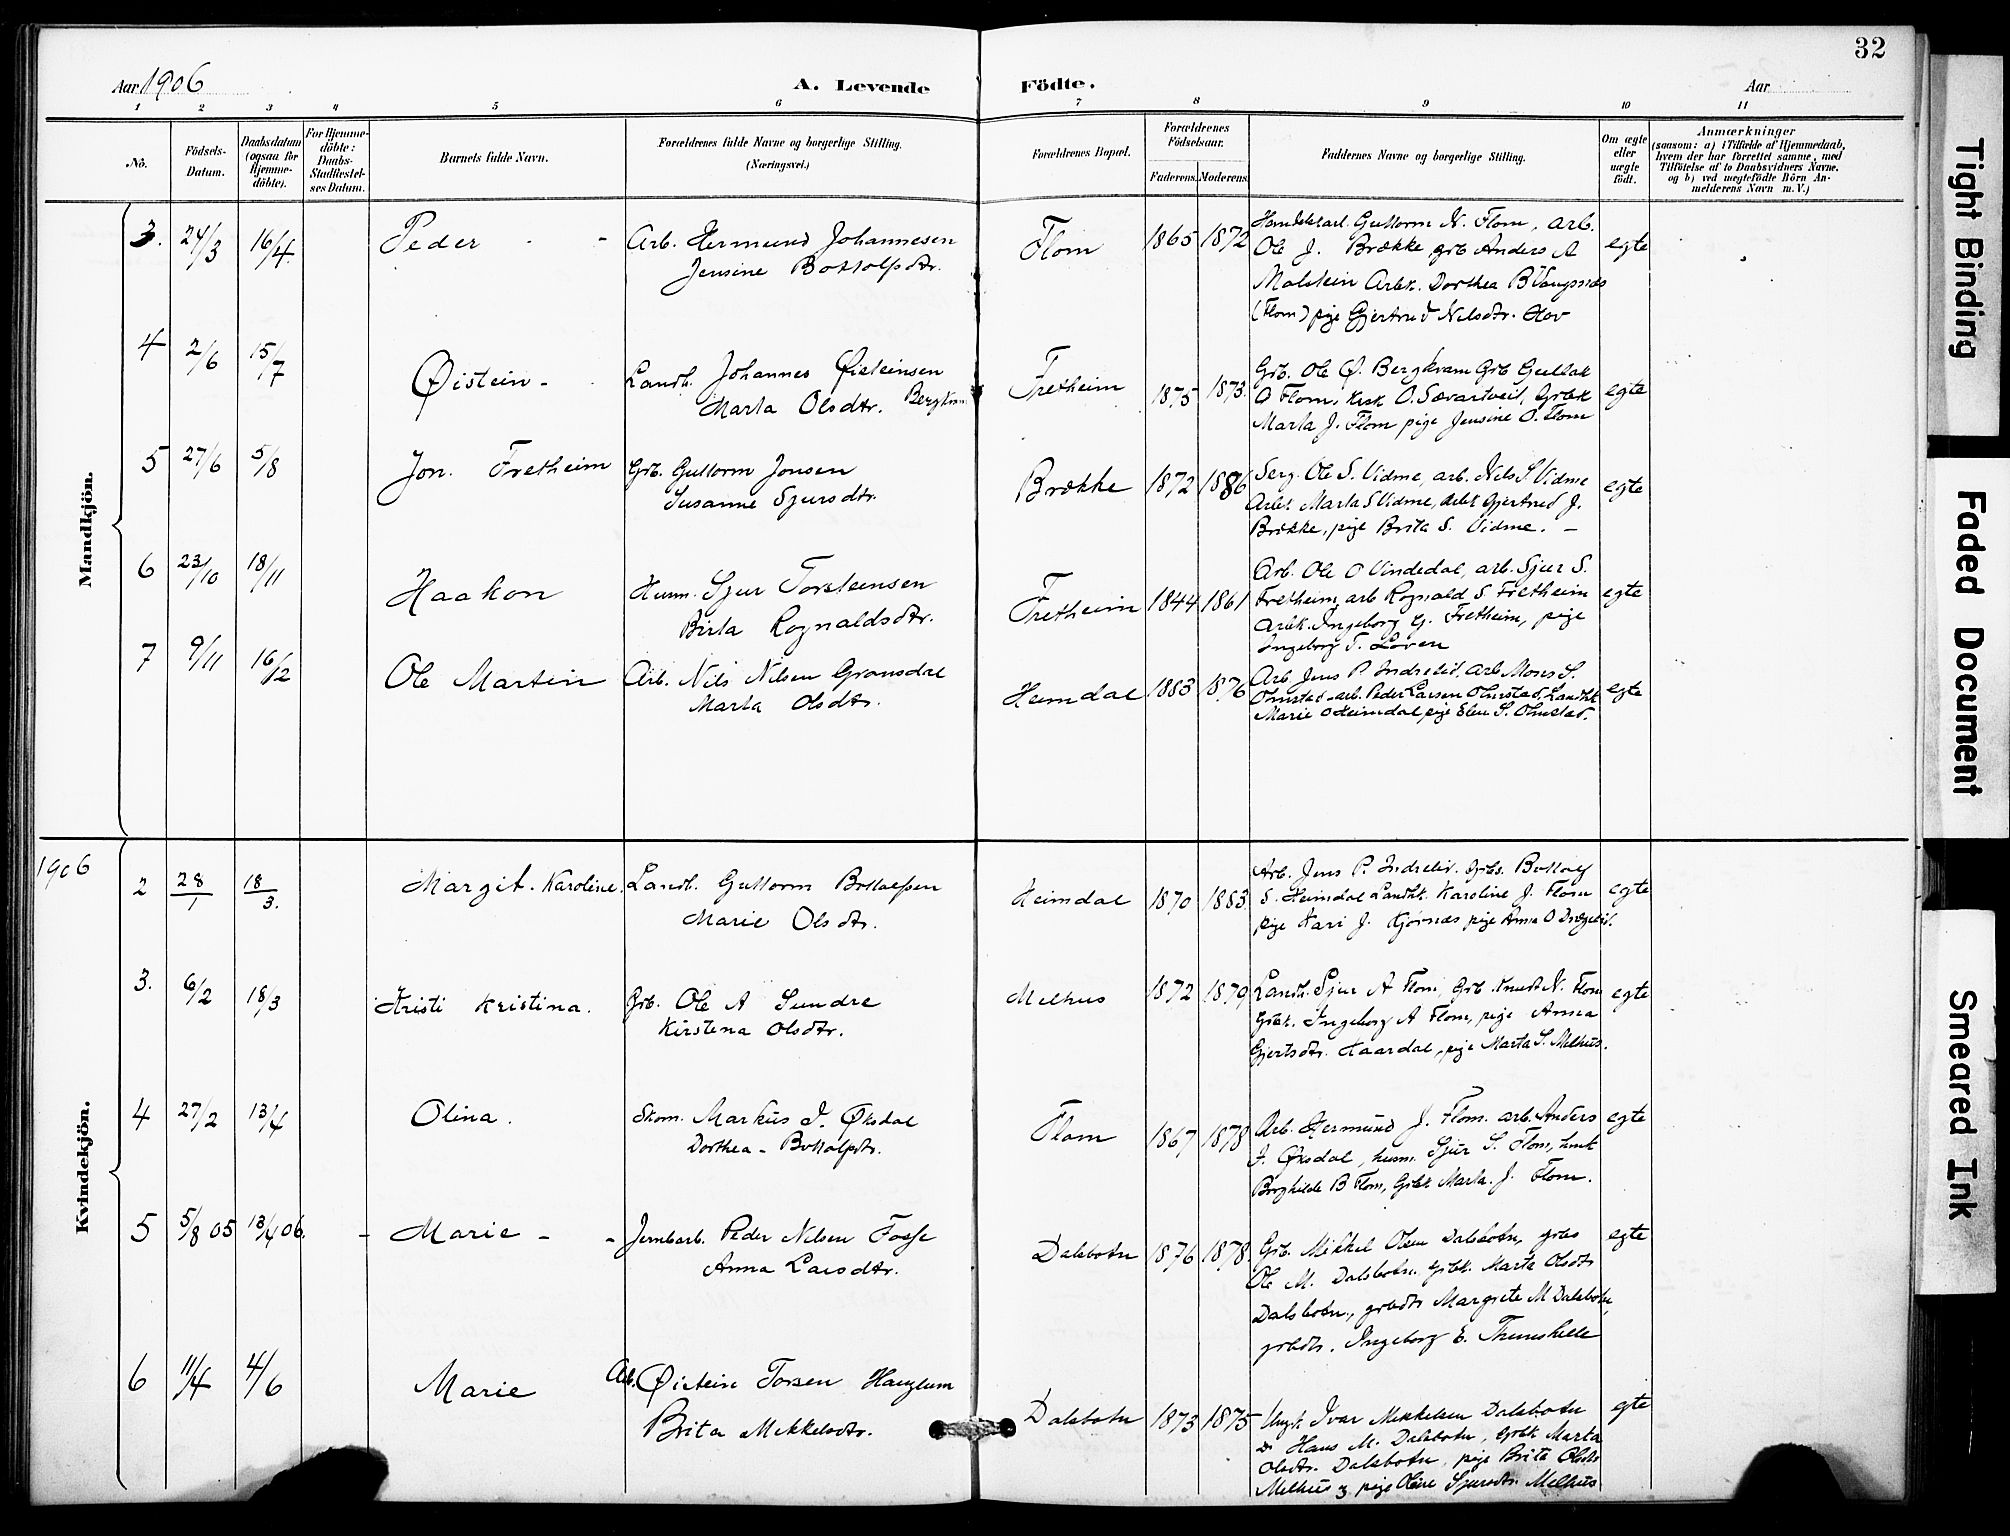 32
Aar 1906
A. Levende
Födte.
Aar
1 2 3 4 5 6 7 8 9 10 11
No.
Födsels-Datum.
Daabsdatum (ogsaa for Hjemme-döbte).
For Hjemme-döbte: Daabs-Stadfæstel-ses Datum.
Barnets fulde Navn.
Forældrenes fulde Navne og borgerlige Stilling. (Næringsvei.)
Forældrenes Bopæl.
Forældrenes Födselsaar.
Faderens. Moderens.
Faddernes Navne og borgerlige Stilling.
Om ægte eller uægte födt.
Anmærkninger
(saasom: a) i Tilfælde af Hjemmedaab, hvem der har forrettet samme, med Tilföielse af to Daabsvidners Navne, og b) ved uegtefödte Börn An-melderens Navn m. V.)
Mandkjön.
3. 24/3 16/4 Peder
Arb. Hermund Johannesen
Jensine Bottolpdtr.
Flom 1865 1872
Handelskarl. Guttorm N. Flom, arb.
Ole J. Brække, grb Anders A
Molstein Arbk. Dorthea B Vangsnæs
(Flom) pige Gjertrud Nilsdtr. Hov
egte
4 2/6 15/7 Øistein -
Landh. Johannes Øisteinsen
Marta Olsdtr.
Fretheim 1875 1873.
Grb. Ole Ø. Bergkvam Grb Gullak
O Flom, kusk O. Sævartveit, Grbk
Marta J. Flom pige Jensine O. Flom
egte
5 27/6 5/8 Jon. Fretheim
Grb. Guttorm Jonsen
Susanne Sjursdtr.
Brække 1872 1886
Serg. Ole S. Vidme, arb. Nils S Vidme
Arbk Marta S Vidme, arbk Gjertrud J.
Brække, pige Brita S. Vidme. -
egte
6 23/10 18/11 Haakon
Husm. Sjur Torsteinsen
Birta Rognaldsdtr.
Fretheim 1844 1861
Arb. Ole O Vindedal, arb. Sjur S.
Fretheim, arb Rognald S Fretheim
Arbk. Ingeborg G. Fretheim, pige
Ingeborg T. Løven
egte
7 9/11 16/2 Ole Martin
Arb. Nils Nilsen Gronsdal
Marta Olsdtr.
Heimdal 1883 1876
Arb Jens P. Indrelid, arb Mons S.
Ohnstad - arb. Peder Larsen Ohnstad, Landhk
Marie O Heimdal, pige Elen S. Ohnstad.
egte
1906
Kvindekjön.
2 28/1 18/3. Margit. Karoline.
Landh. Guttorm Bottolfsen
Marie Olsdtr.
Heimdal 1870 1883.
Arb. Jens P. Indrelid. Grbs. Bottolf
S. Heimdal Landhk. Karoline J. Flom
pige Kari J. Kjørnæs pige Anna O
egte
3. 6/2 18/3 Kristi Kristina.
Grb. Ole A Sundre
Kirstena Olsdtr.
Melhus 1872 1879
Landh. Sjur A Flom, Grb. Knud N. Flom
Grbk. Ingeborg A Flom, pige Anna
Gjertsdtr. Haardal, pige Marta S. Melhus.
egte
4 27/2 13/4 Olina.
Skom. Markus J. Øksdal
Dorthea - Bottolpdtr.
Flom 1867 1878
Arb. Hermund J. Flom. arb. Anders
J. Øksdal, husm. Sjur S. Flom, hmk
Borghilde B Flom, Grbk. Marta. J. Flom.
egte
5 5/8 05 13/4 06. - Marie -
- Jernbarb. Peder Nilsen Fosse
Anna Larsdtr.
Dalsbotn 1876 1878.
Grb. Mikkel Olsen Dalsbotn, grbs
Ole M. Dalsbotn. grbk. Marta Olsdtr
Dalsbotn, grbdtr Margrete M Dalsbotn,
grbdtr. Ingeborg E. Thunshelle
egte
6 11/4 4/6 Marie
Arb. Øistein Torsen Haugum
Brita Mikkelsdtr.
Dalsbotn 1873 1875
Ungk Ivar Mikkelsen Dalsbotn
Do Hans M. Dalsbotn, Grbk Marta
Olsdtr. Dalsbotn, pige Brita Olsdtr
Melhus og pige Oline Sjursdtr. Melhus
egte
Tight Binding
Faded Document
Smeared Ink